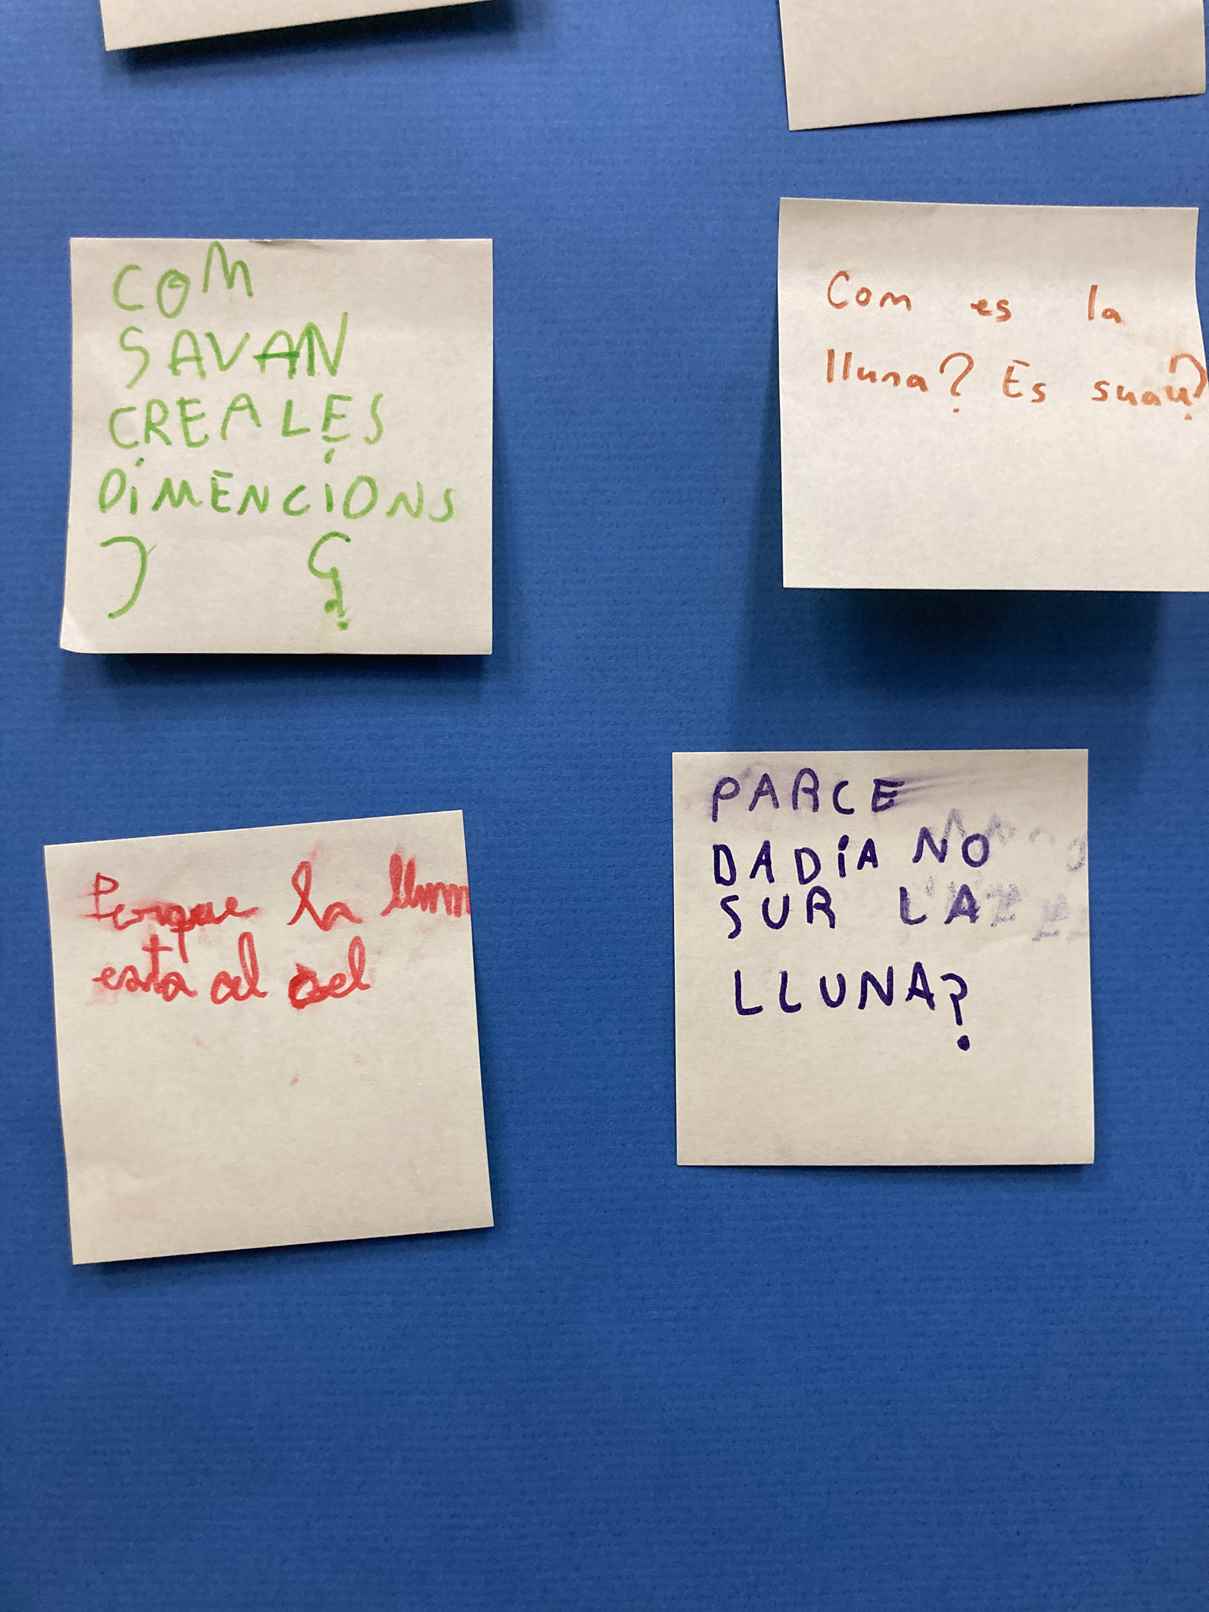 COM
SAVAN
CREALES
DIMENCIONS
?
Com es la
lluna? Es suau?
Perque la
esta al cel
PARCE
DADÍA NO
SUR LA
LLUNA?